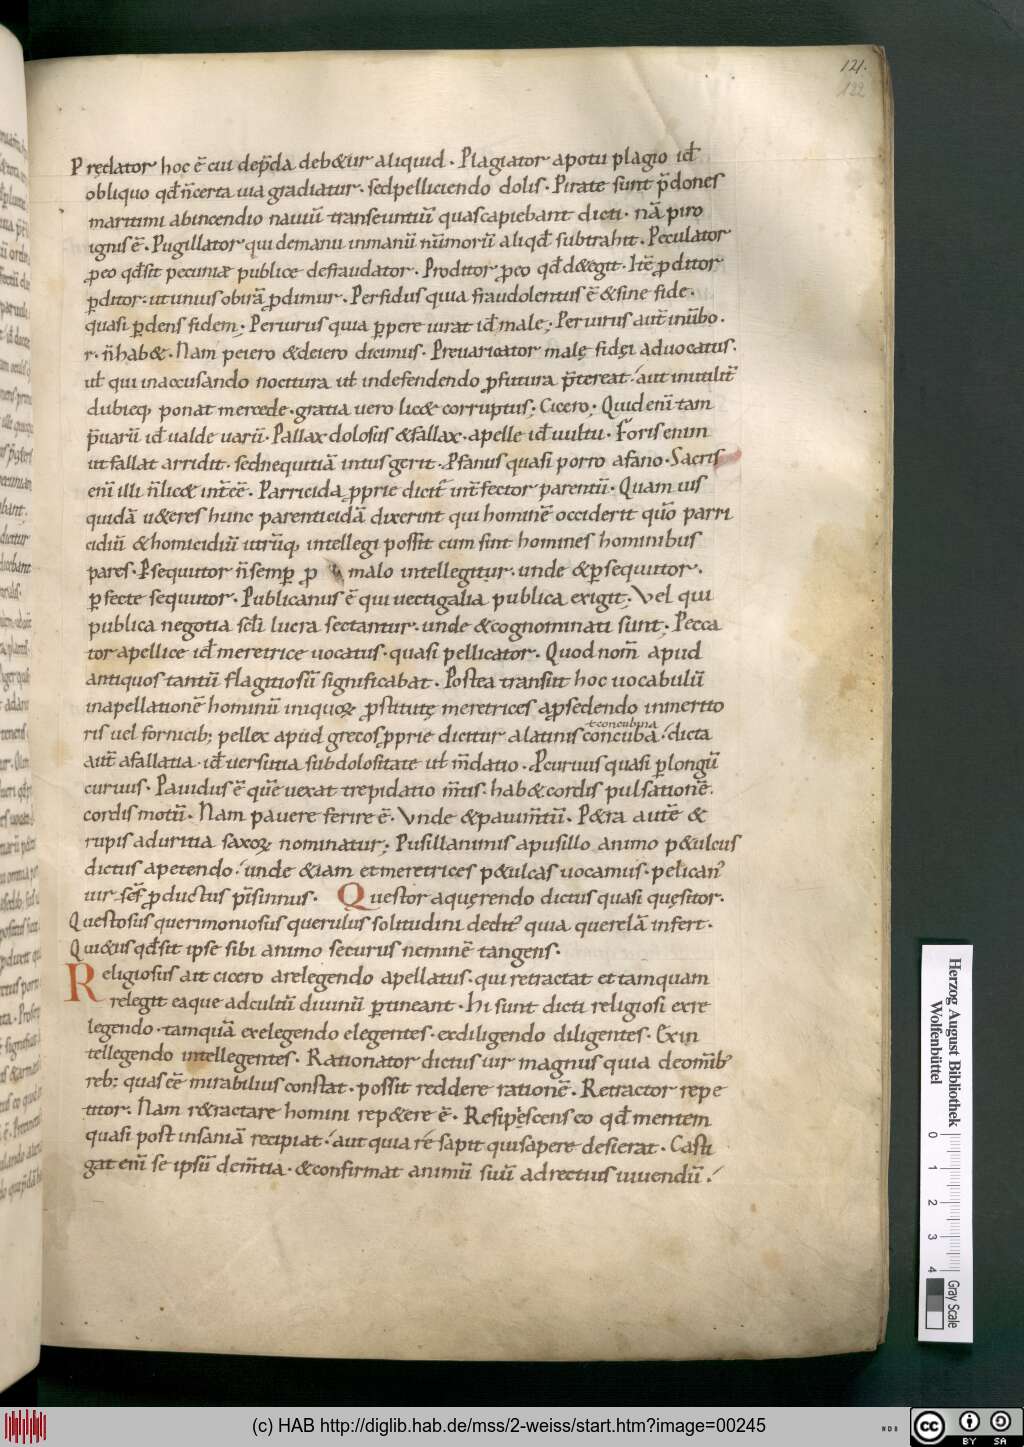 121.
122
Prędator hoc ē cui dep̄da deb&ur aliquid. Plagiator apotu plagio id̄
obliquo qd̄ n̄certa uia gradiatur. sedpelliciendo dolis. Pirate sunt p̄dones
maritimi abincendio nauiū transeuntiū quascapiebant dicti. nā piro
ignis ē. Pugillator qui demanu inmanū nūmorū aliqd̄ subtrahit. Peculator
ꝓeo qd̄sit pecuniæ publice defraudator. Proditor ꝓeo qd̄ d&egit. Itē ꝓditor
ꝑditor: ut unius obirā ꝓdimur. Perfidus quia fraudolentus ē & sine fide.
quasi ꝑdens fidem; Periurus quia ꝑpere iurat id̄ male; Periurus aut̄ inūbo.
r. n̄ hab&. Nam peiero & deiero dicimus. Preuaricator malę fidęi aduocatus.
ut̄ qui inaccusando nocitura ut̄ indefendendo ꝓfutura p̄tereat. aut inutilit̄
dubieq, ponat mercede. gratia uero lic& corruptus; Cicero; Quid enī tam
p̄uarū id̄ ualde uarū. Pallax dolosus & fallax. apelle id̄ uultu. Foris enim
ut fallat arridit. sednequitiā intus gerit. Ꝓfanus quasi porro afano. Sacris
enī illi n̄ lic& int̄eē. Parricida ꝓprie dicit̄ int̄fector parentū. Quam uis
quidā u&eres hunc parenticidā dixerint qui hominē occiderit quō parri
cidiū & homicidiū utrūq, intellegi possit cum sint homines hominibus
pares. Ꝓsequitor n̄ semꝑ ꝓ malo intellegitur. unde & ꝑsequitor.
ꝑfecte sequitor. Publicanus ē qui uectigalia publica exigit; Vel qui
publica negotia sc̄li lucra sectantur. unde & cognominati sunt; Pecca
tor apellice id̄ meretrice uocatus. quasi pellicator. Quod nom̄ apud
antiquos tantū flagitiosū significabat. Postea transiit hoc uocabulū
inapellationē hominū iniquoꝝ ꝓstitutę meretrices aꝓsedendo inmerito
ris uel fornicib; pellex apud grecos ꝓprie dicitur a latinis concuba. dicta
ł concubina
aut̄ afallatia. id̄ uersutia subdolositate ut̄ m̄datio. Ꝓcuruus quasi ꝑlongū
curuus. Pauidus ē quē uexat trepidatio m̄tis. hab& cordis pulsationē.
cordis motū. Nam pauere ferire ē. Vnde & pauim̄tū. P&ra autē &
rupis aduritia saxoꝝ nominatur; Pusillanimis apusillo animo p&ulcus
dictus apetendo. unde &iam et meretrices p&ulcas uocamus. pelicanꝰ
uir. sēs ꝓductus pīsinnus. Questor aquęrendo dictus quasi quęsitor.
Questosus querimoniosus querulus solitudini deditꝰ quia querelā infert.
Qui&us qd̄sit ipse sibi animo securus neminē tangens.
Religiosus ait cicero arelegendo apellatus. qui retractat et tamquam
relegit eaque adcultū diuinū ꝑtineant. Hi sunt dicti religiosi exre
legendo. tamquā exelegendo elegentes. exdiligendo diligentes. Exin
tellegendo intellegentes. Rationator dictus uir magnus quia deomīb;
reb; quas eē mirabilius constat. possit reddere rationē. Retractor repe
titor. Nam r&ractare homini rep&ere ē. Resipęscens eo qd̄ mentem
quasi post insaniā recipiat. aut quia re sapit qui sapere desierat. Casti
gat enī se ipsū dem̄tia. & confirmat animū suū ad rectius uiuendū.
Herzog August Bibliothek
Wolfenbüttel
0 1 2 3 4
Gray Scale
(c) HAB http://diglib.hab.de/mss/2-weiss/start.htm?image=00245
cc BY SA